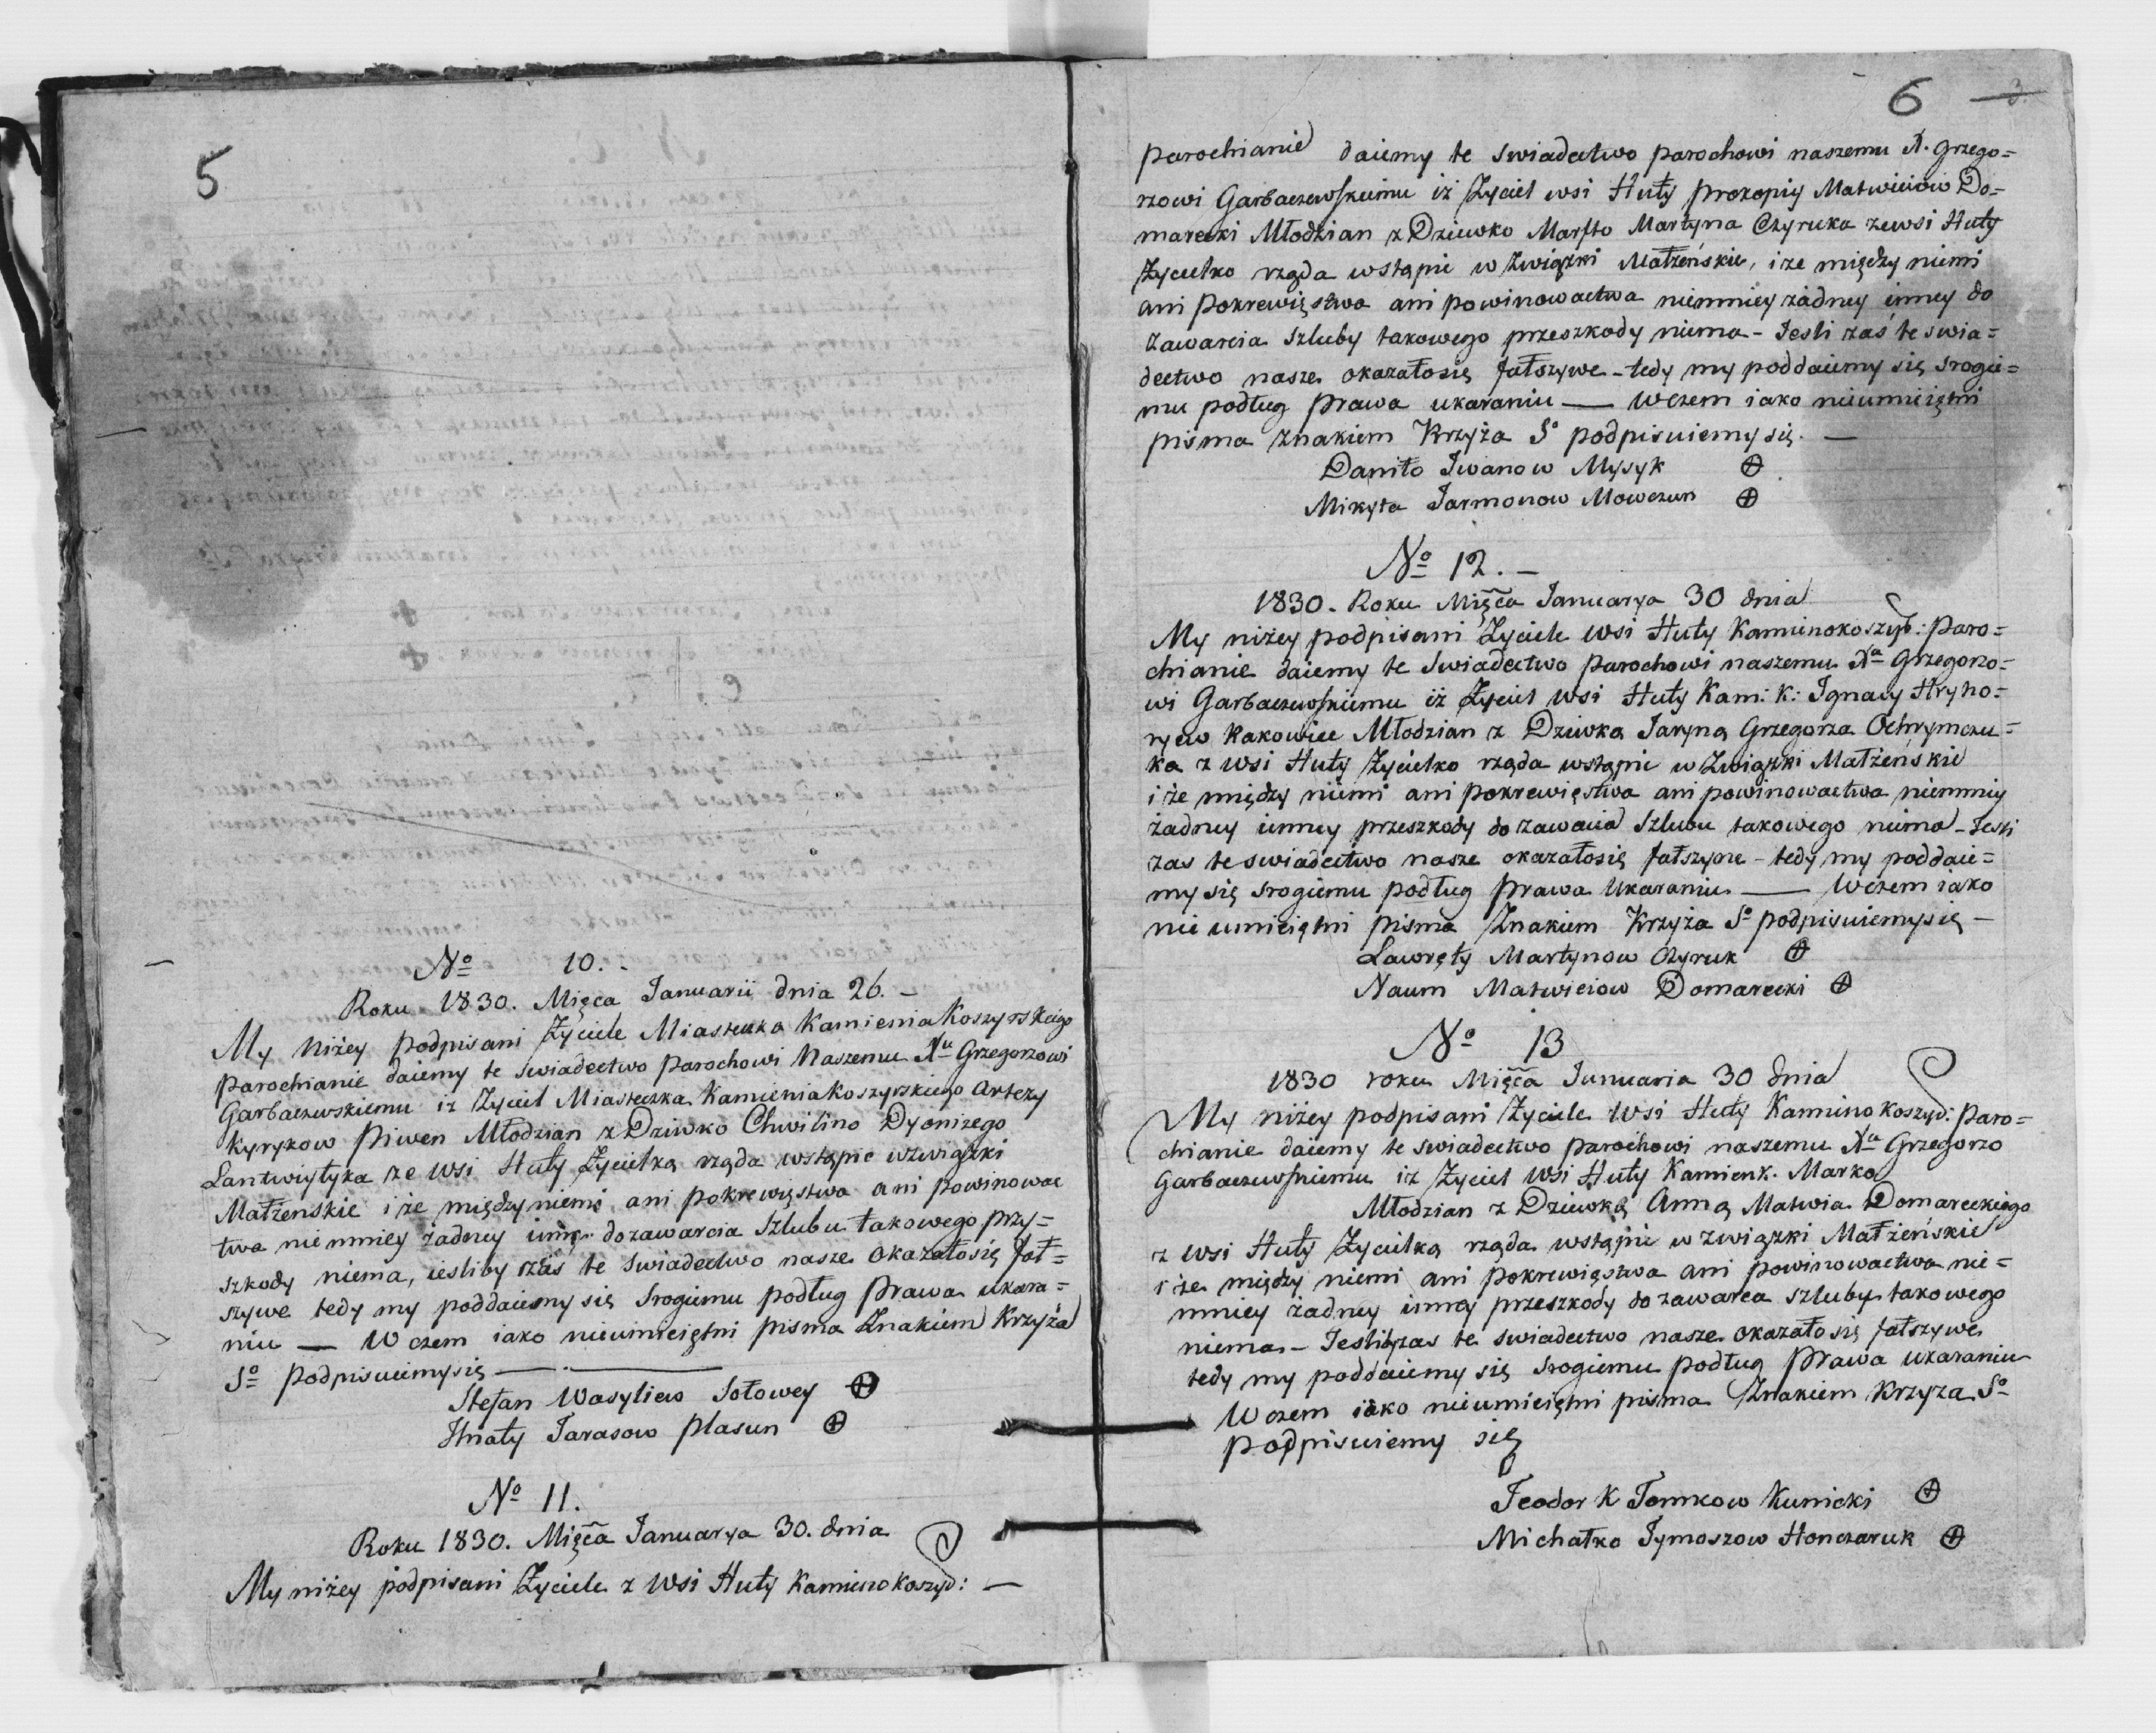 5
№ 10. -
Roku 1830. Mięca Januarii dnia 26. -
My Niżey podpisani Życiele Miasteczka Kamienia Koszyrskiego
parochianie daiemy te swiadectwo parochowi Naszemu Xu Grzegorzowi
Garbaczewskiemu iż Życiel Miasteczka Kamienia Koszyrskiego Artezy
Kyrykow Piwen Młodzian z Dziwko Chwilino Dyonizego
Lantwiytyka ze wsi Huty Życielką rząda wstąpic wzwiązki
Małżenskie i że międzyniemi ani pokrewięstwa ani powinowac
twa niemniey żadney inney dozawarcia Szlubu takowego przy=
szkody niema, iesliby zaś te Swiadectwo nasze okazałosię fał=
szywe tedy my poddaiemy się Srogiemu podług Prawa ukara=
niu — W czem iako nieumieiętni pisma Znakiem Krzyża
So podpisuiemysię —
Stefan Wasyliew Sołowey ⊕
Hnaty Tarasow Plasun ⊕
№ 11.
Roku 1830. Mięca Januarya 30. dnia
My niżey podpisani Życiele z Wsi Huty Kamienokoszyr: —
6 3.
parochianie daiemy te swiadectwo parochowi naszemu X. Grzego=
rzowi Garbaczewskiemu iż Życiel wsi Huty Prokopiy Matwieiow Do=
marecki Młodzian z Dziewko Marfto Martyna Czyruka zewsi Huty
Życielko rząda wstąpic w Związki Małżeńskie, i że między niemi
ani Pokrewięstwa ani powinowactwa niemniey żadney inney do
zawarcia Szluby takowego przeszkody niema - Jesli zaś te swia=
dectwo nasze okazałosię fałszywe - tedy my poddaiemy się Srogie=
mu podług Prawa ukaraniu — W czem iako nieumieiętni
pisma znakiem Krzyża So podpisuiemy się. —
Daniło Iwanow Mysyk ⊕
Mikyta Jarmonow Mowczun ⊕
№ 12. -
1830. Roku Mięca Januarya 30 dnia
My niżey podpisani Życiele wsi Huty Kaminokoszyr: Paro=
chianie daiemy te Swiadectwo parochowi naszemu Xu Grzegorzo=
wi Garbaczewskiemu iż Życiel wsi Huty Kam: K: Ignacy Hryho=
ryew Kakowiec Młodzian z Dziewką Jaryną Grzegorza Ochrymczu=
ka z wsi Huty Życielko rząda wstąpic w Związki Małżeńskie
i że między niemi ani pokrewięstwa ani powinowactwa niemniey
żadney inney przeszkody do zawacia Szlubu takowego niema - Jesli
zas te swiadectwo nasze okazałosię fałszywe - tedy my poddaie=
my się srogiemu podług Prawa Ukaraniu — W czem iako
nie umieiętni pisma Znakiem Krzyża So podpisuiemysię —
Lawręty Martynow Czyruk ⊕
Naum Matwieiow Domarecki ⊕
№ 13
1830 roku Mięca Junuaria 30 dnia
My niżey podpisani Życiele Wsi Huty Kamino Koszyr: Paro=
chianie daiemy te swiadectwo parochowi naszemu Xu Grzegorzo
Garbaczewskiemu iż Życiel Wsi Huty Kamienk. Marko
Młodzian z Dziewką Anną Matwia Domareckiego
z wsi Huty Życielką rząda wstąpic w związki Małżeńskie
i że między niemi ani pokrewięstwa ani powinowactwa nie=
mniey żadney inney przeszkody do zawarca szluby takowego
niema - Jesliby zas te swiadectwo nasze okazało się fałszywe
tedy my poddaiemy się srogiemu podług Prawa ukaraniu
W czem iako nieumieiętni pisma Znakiem Krzyza So
podpisuiemy się
Teodor K Tomkow Kunicki ⊕
Michałko Tymoszow Honczaruk ⊕